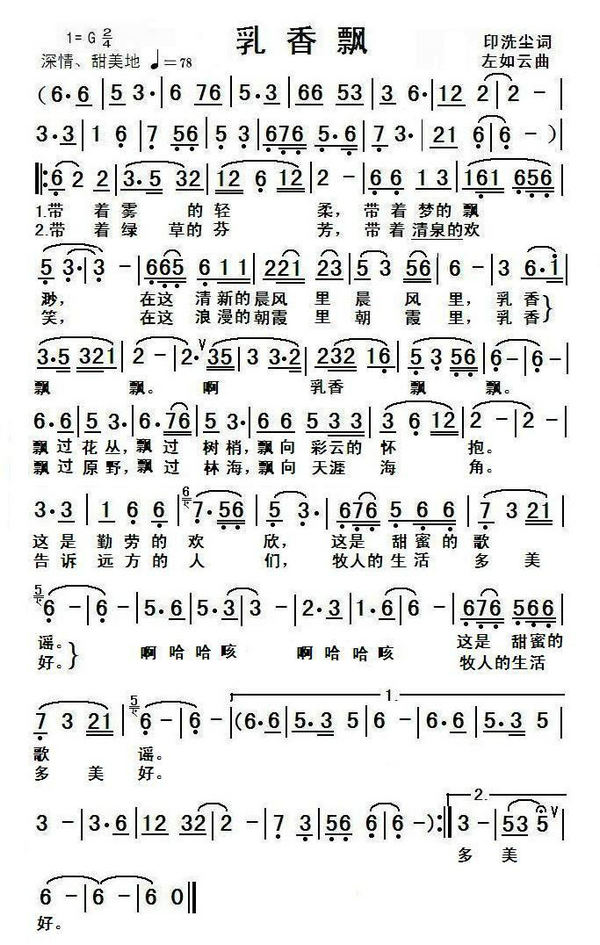 乳香飘
1=G 2/4
印洗尘词
深情、甜美地 ♩=78
左如云曲
(6·6 | 5·3 | 6·76 | 5·3 | 66 53 | 3·6 | 12 2 | 2 - |
3·3 | 1 6 | 7 56 | 5·3 | 676 5·6 | 7 3· | 21 6 | 6 - )|
|: 6 2 2 | 3·5 32 | 12 6 12 | 2 - | 6 6 1 3 | 161 656 |
1.带 着 雾 的 轻 柔, 带 着 梦 的 飘
2.带 着 绿 草 的 芬 芳, 带 着 清泉的欢
5 3· | 3 - | 665 6 11 | 221 23 | 5 3 56 | 6 - | 3 6·1 |
渺, 在这 清新的晨风 里 晨 风 里, 乳 香
笑, 在这 浪漫的朝霞 里 朝 霞 里, 乳 香
3·5 321 | 2 - | 2· 35 | 3 3·2 | 232 16 | 5 3 56 | 6 - | 6 - |
飘 飘。 啊 乳香 飘 飘。
6·6 | 5 3· | 6·76 | 5 3· | 6 6 5 33 | 3 6 12 | 2 - | 2 - |
飘过 花丛, 飘过 树梢, 飘向 彩云的 怀 抱。
飘过 原野, 飘过 林海, 飘向 天涯 海 角。
3·3 | 1 6 6 | 7·56 | 5 3· | 676 5 6 6 | 7 3 21 |
这是 勤劳的 欢 欣, 这是 甜蜜的 歌
告诉 远方的 人 们, 牧人的生活 多 美
6 - | 6 - | 5·6 | 5·3 | 3 - | 2·3 | 1·6 | 6 - | 676 566 |
谣。 啊哈哈咳 啊哈哈咳 这是 甜蜜的
好。 牧人的生活
7 3 21 | 6 - | 6 - | (6·6 | 5·3 5 | 6·6 | 5·3 5 |
1.
歌 谣。
多 美 好。
3 - | 3·6 | 12 32 | 2 - | 7 3 | 56 6 | 6 - ) :| 3 - | 53 5 |
2.
多 美
6 - | 6 - | 6 0 ||
好。